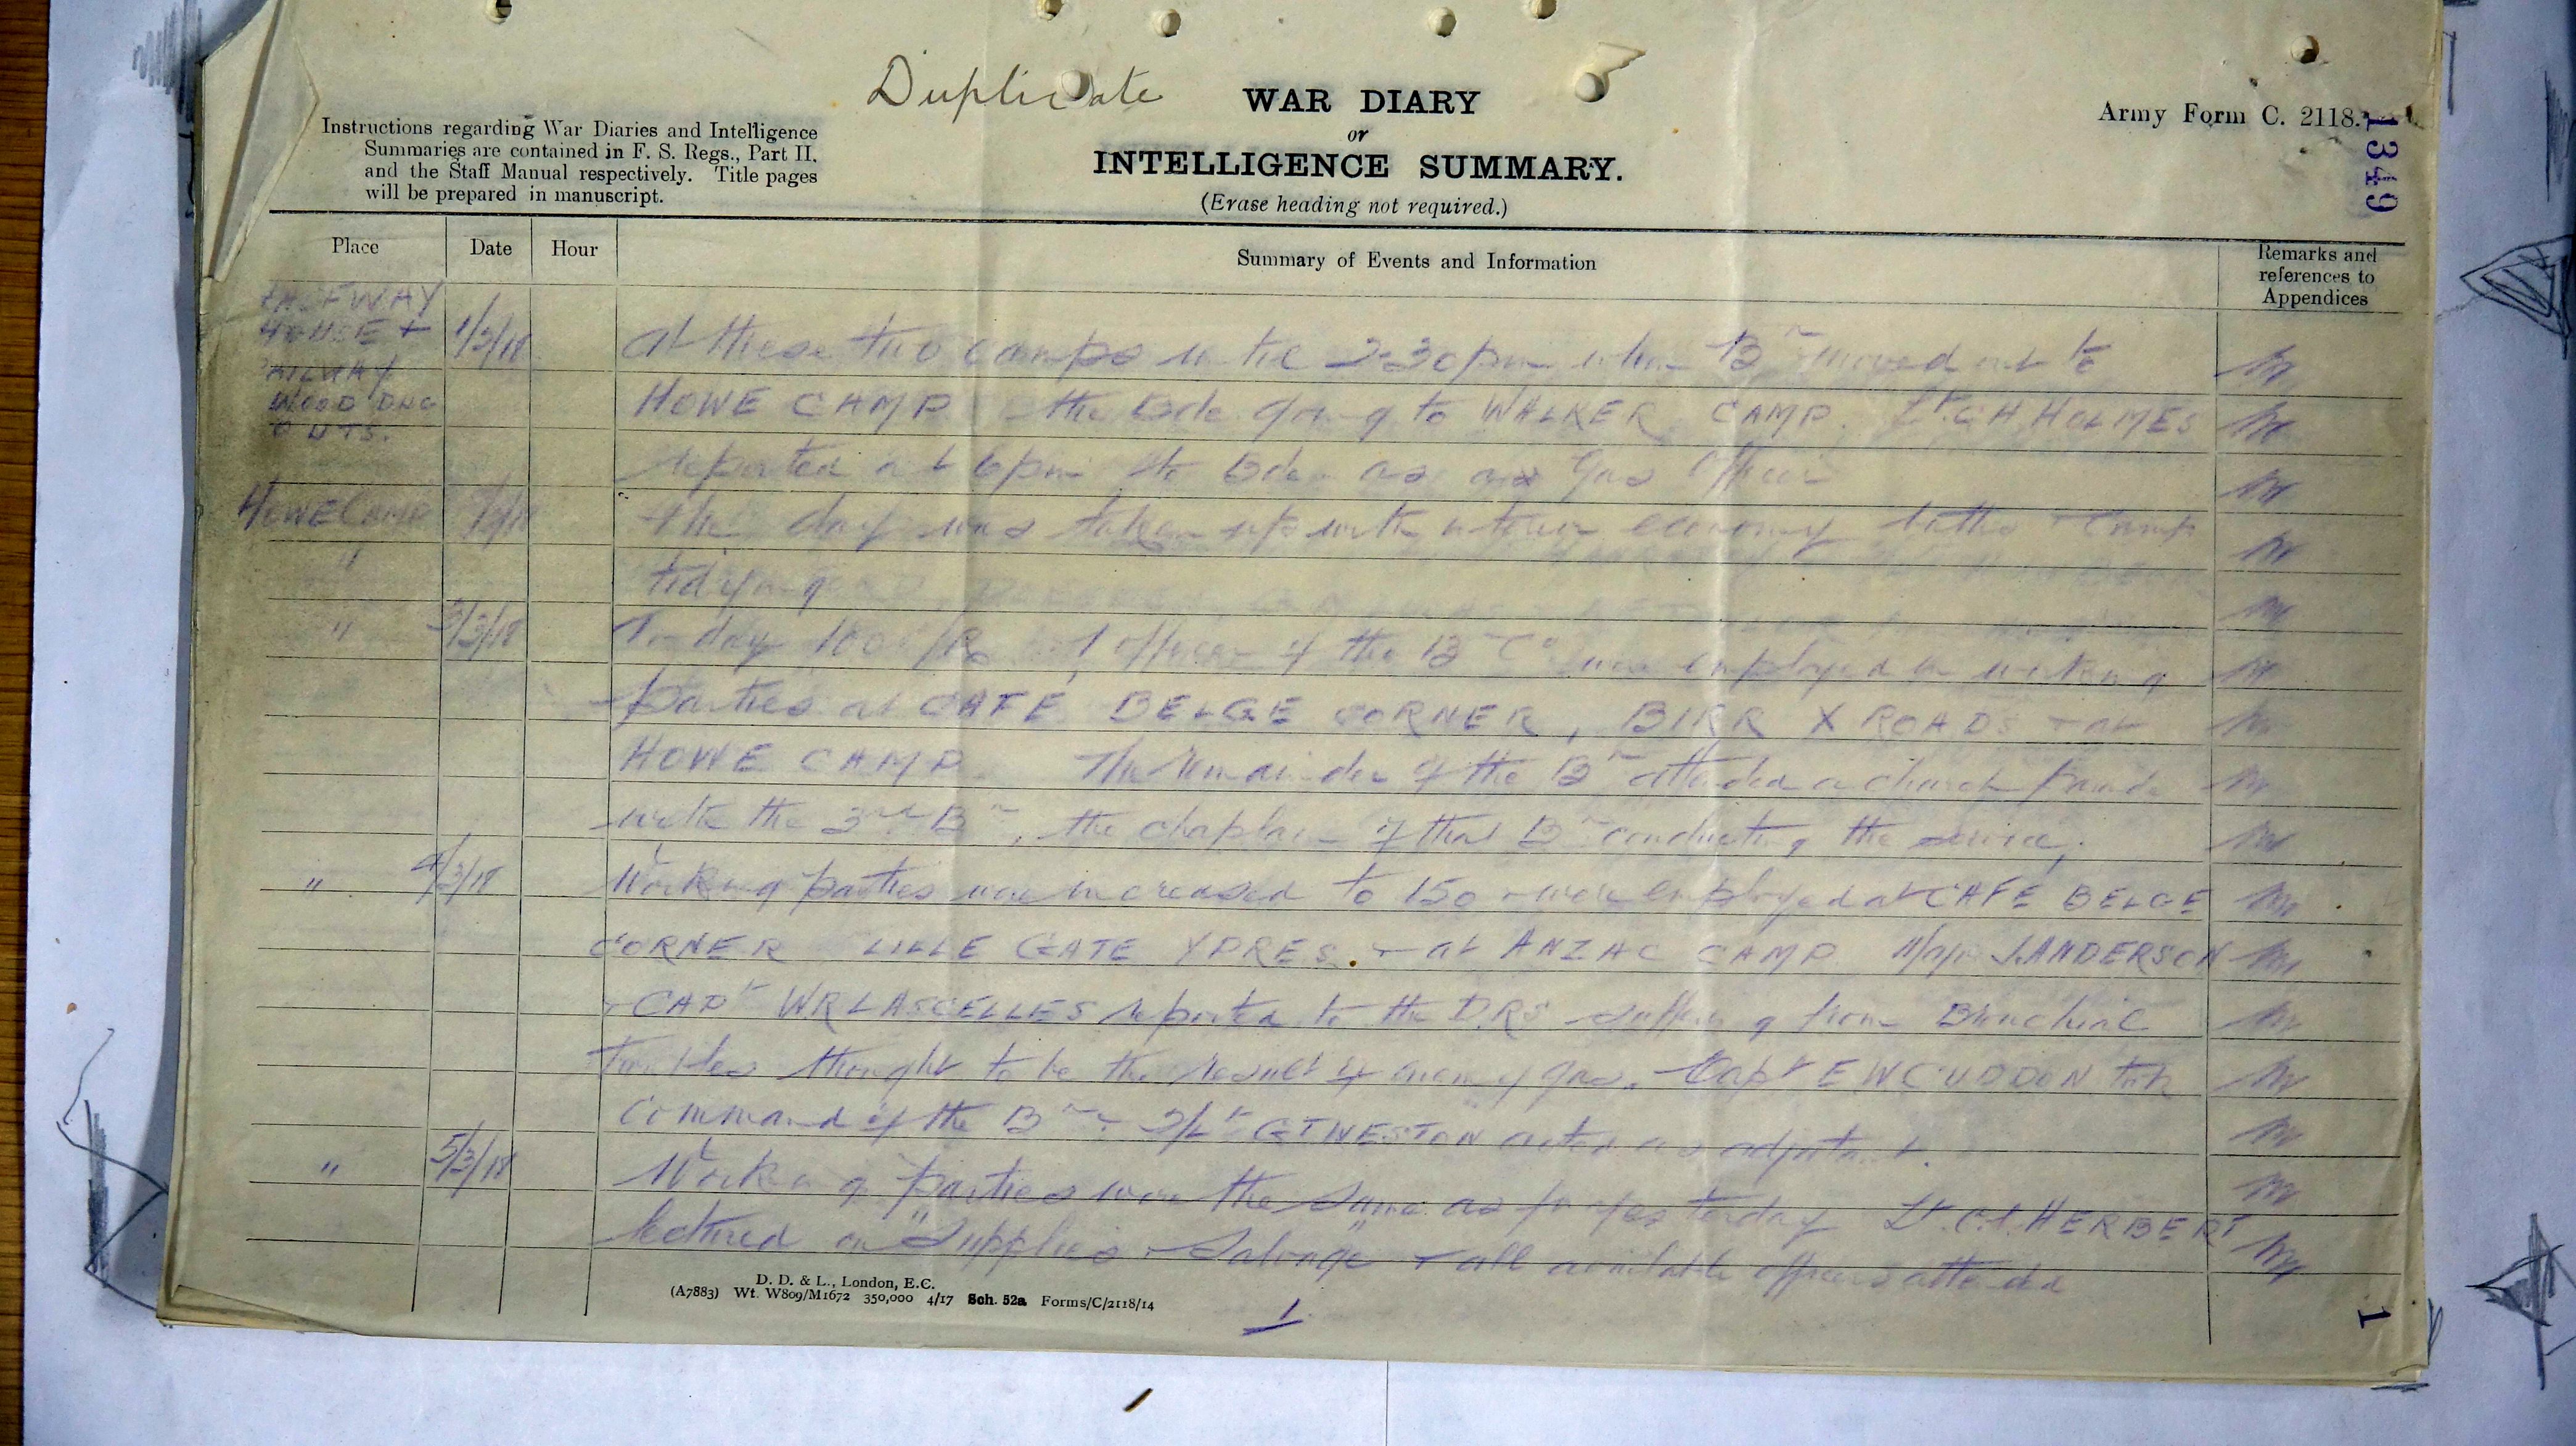 Duplicate
WAR DIARY
or
INTELLIGENCE SUMMARY.
(Erase heading not required.)
Army Form C. 2118.
1349
Instructions regarding War Diaries and Intelligence
Summaries are contained in F. S. Regs., Part II.
and the Staff Manual respectively. Title pages
will be prepared in manuscript.
Place
Date
Hour
Summary of Events and Information
Remarks and
references to
Appendices
HALFWAY
HOUSE +
RAILWAY
WOOD DUG
OUTS.
1/3/18
At these two camps until 2-30pm when Bn moved out to
HOWE CAMP the Bde going to WALKER CAMP. Lt. G H HOLMES
reported at 6pm to Bde as Gas Officer
HOWE CAMP
The day was taken up with interior economy baths + Camp
"
tidying
" 3/3/18
To-day 100 ORs officer of the Bn were employed on working
parties at CAFÉ BELGE CORNER, BIRR X ROADS + at
HOWE CAMP The remainder of the Bn attended a church parade
with the 3rd Bn, the chaplain of that Bn conducting the service.
" 4/3/18
Working parties were increased to 150 + were employed at CAFE BELGE
CORNER LILLE GATE YPRES. + at ANZAC CAMP J. ANDERSON
+ CAPt WR LASCELLES reported to the D.R.S suffering from Bronchial
troubles thought to be the result of enemy gas. Capt E W CUDDON took
command of the Bn + 2/Lt GT WESTON acted as adjutant.
" 5/3/18
Working parties were the same as for yesterday Lt. C.L. HERBERT
lectured on "Supplies + Salvage" + all available officers attended
D. D. & L., London, E.C.
(A7883) Wt. W809/M1672 350,000 4/17 Sch. 52a Forms/C/2118/14
1
1